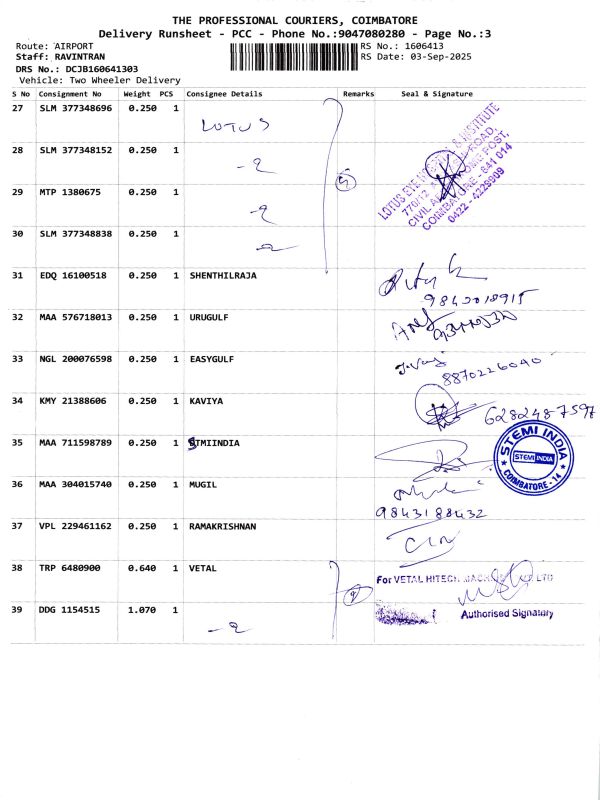 THE PROFESSIONAL COURIERS, COIMBATORE
Delivery Runsheet - PCC - Phone No.:9047080280 - Page No.:3
Route: AIRPORT
RS No.: 1606413
Staff: RAVINTRAN
RS Date: 03-Sep-2025
DRS No.: DCJB160641303
Vehicle: Two Wheeler Delivery
S No Consignment No Weight PCS Consignee Details Remarks Seal & Signature
27 SLM 377348696 0.250 1 LOTUS
28 SLM 377348152 0.250 1
29 MTP 1380675 0.250 1
30 SLM 377348838 0.250 1
LOTUS EYE HOSPITAL & INSTITUTE
770/12, ROAD,
CIVIL AERODROME POST,
COIMBATORE - 641 014
0422 - 4229909
31 EDQ 16100518 0.250 1 SHENTHILRAJA
32 MAA 576718013 0.250 1 URUGULF
33 NGL 200076598 0.250 1 EASYGULF
8870226040
34 KMY 21388606 0.250 1 KAVIYA
6282487597
35 MAA 711598789 0.250 1 STMIINDIA
STEMI INDIA
STEMI INDIA
COIMBATORE - 14
36 MAA 304015740 0.250 1 MUGIL
9843188432
37 VPL 229461162 0.250 1 RAMAKRISHNAN
38 TRP 6480900 0.640 1 VETAL
For VETAL HITECH LTD
39 DDG 1154515 1.070 1
Authorised Signatory